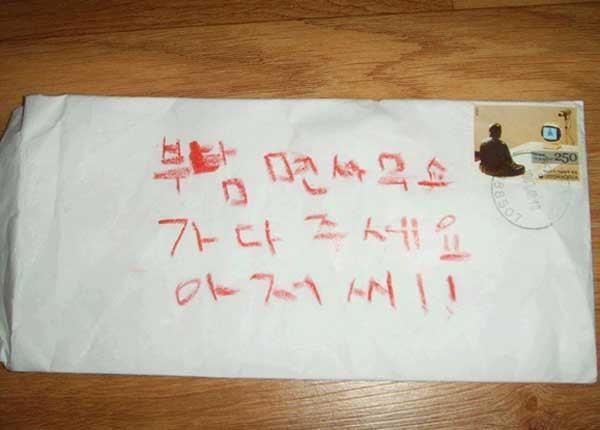 부탐 면싸무소
가다 주세요
아저씨!!
250